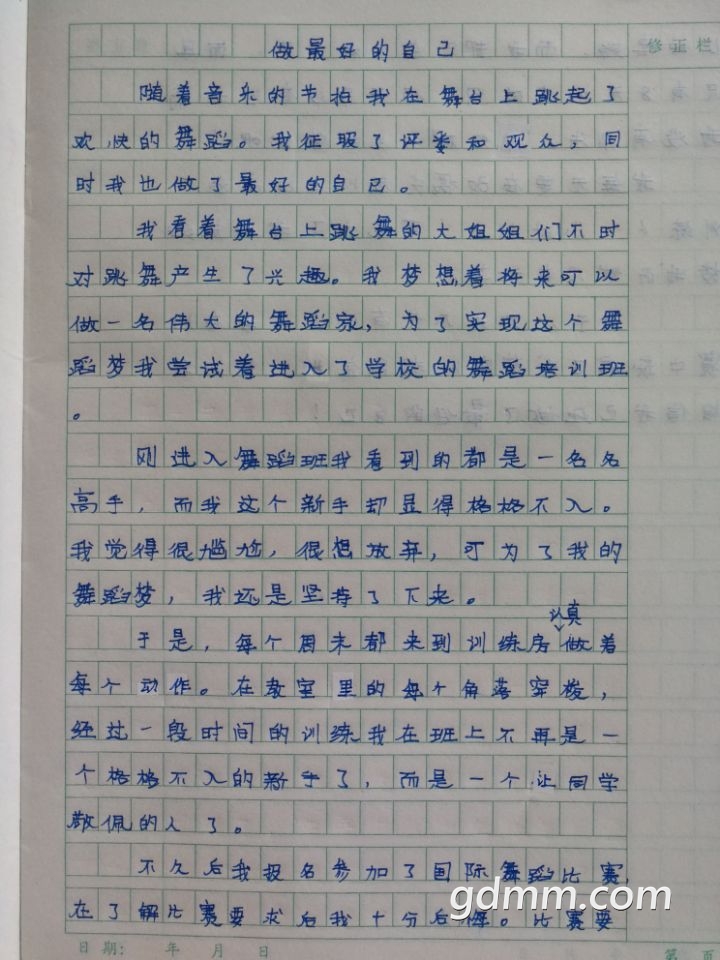 做最好的自己
修正栏
随着音乐的节拍我在舞台上跳起了
欢快的舞蹈。我征服了评委和观众，同
时我也做了最好的自已。
我看着舞台上跳舞的大姐姐们不时
对跳舞产生了兴趣。我梦想着将来可以
做一名伟大的舞蹈家，为了实现这个舞
蹈梦我尝试着进入了学校的舞蹈培训班
。
刚进入舞蹈班我看到的都是一名名
高手，而我这个新手却显得格格不入。
我觉得很尴尬，很想放弃，可为了我的
舞蹈梦，我还是坚持了下来。
认真
于是，每个周末都来到训练房做着
每个动作。在教室里的每个角落穿梭，
经过一段时间的训练我在班上不再是一
个格格不入的新手了，而是一个让同学
敬佩的人了。
不久后我报名参加了国际舞蹈比赛，
在了解比赛要求后我十分后悔。比赛要
gdmm.com
日期： 年 月 日
第 页